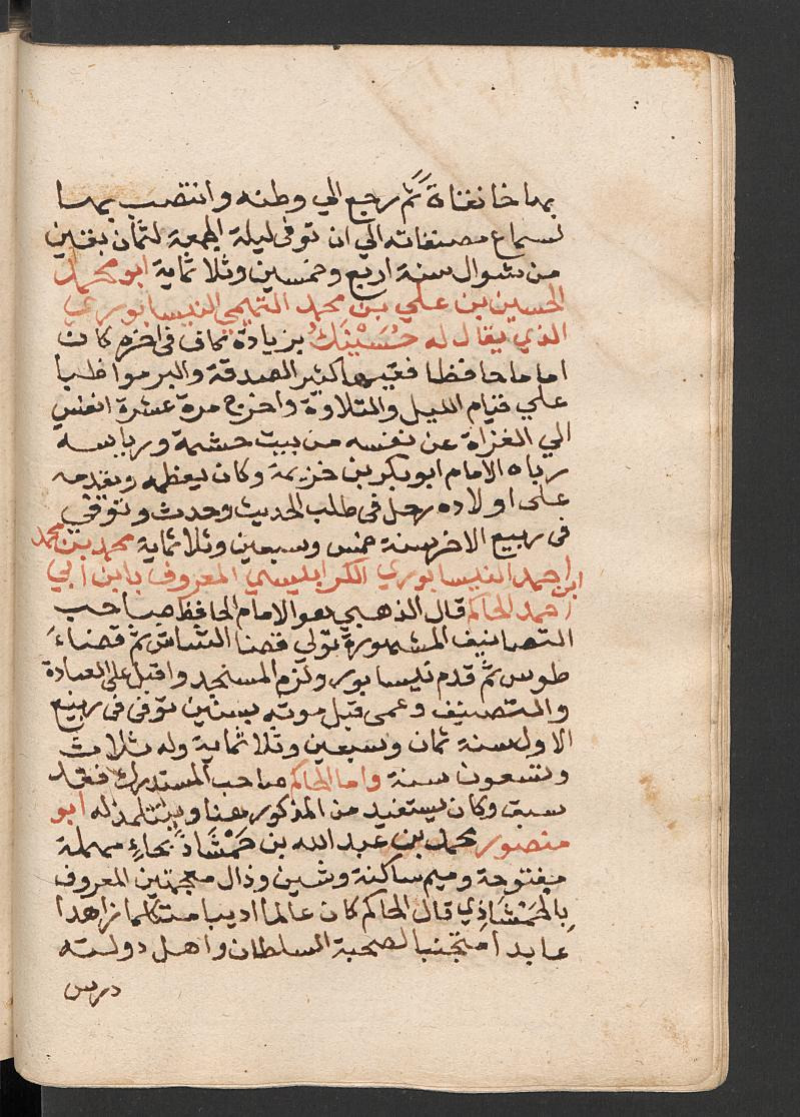 بها خانقاةً ثم رجع الي وطنه وانتصب بها
لسماع مصنفاته الي ان توفى ليلة الجمعة لثمان بقين
من شوال سنة اربع وخمسين وثلاثماية ابو محمد
الحسين بن علي بن محمد التميمي النيسابوري
الذي يقال له حُسَيْنَكُ بزيادة كاف فى اخره كان
اماما حافظا فقيها كثير الصدقة والبر مواظبا
علي قيام الليل والتلاوة واخرج مرة عشرة انفس
الي الغزاة عن نفسه من بيت حشمة ورياسه
رباه الامام ابو بكر بن خزيمة وكان يعظمه ويقدمه
على اولاده رحل فى طلب الحديث وحدث وتوفي
فى ربيع الاخر سنة خمس وسبعين وثلاثماية محمد بن محمد
ابن احمد النيسابوري الكرابيسي المعروف بابن ابي
احمد الحاكم قال الذهبي هو الامام الحافظ صاحب
التصانيف المشهورة تولي قضا الشاش ثم قضاءَ
طوس ثم قدم نيسابور ولزم المسجد واقبل على العبادة
والتصنيف وعمى قبل موته بسنتين توفى فى ربيع
الاول سنة ثمان وسبعين وثلاثماية وله ثلاث
وتسعون سنة واما الحاكم صاحب المستدرك فقد
سبق وكان يستفيد من المذكور هنا ويتلمذ له ابو
منصور محمد بن عبد الله بن حَمْشَاذ بحاءٍ مهملة
مفتوحة وميم ساكنة وشين وذال معجمتين المعروف
بِالحَمْشَاذِي قال الحاكم كان عالما اديبا متكلما زاهدا
عابدا متجنبا لصحبة السلطان واهل دولته
درس